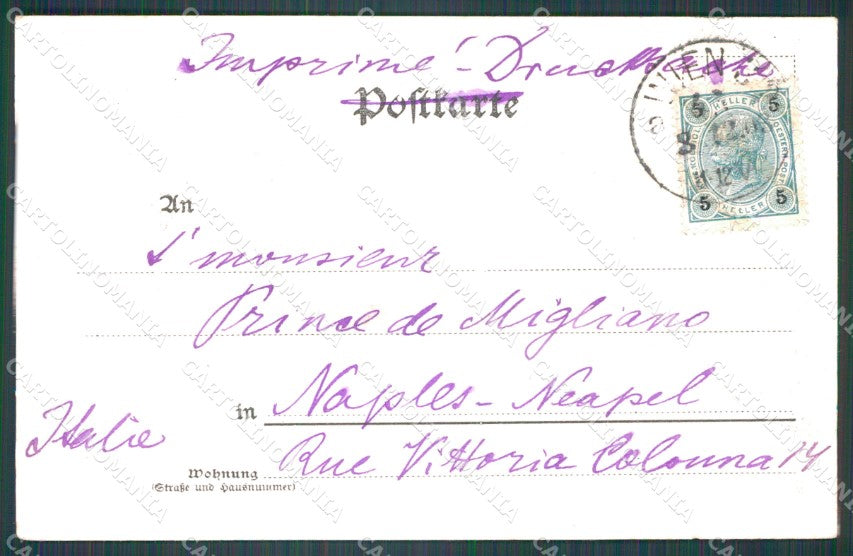 Imprimé - Drucksache
Postkarte
WIEN
8
12 01
5 HELLER 5
5 HELLER 5
An
S' monsieur
Prince de Migliano
in Naples - Neapel
Italie
Rue Vittoria Colonna 14
Wohnung
(Straße und Hausnummer)
CARTOLINOMANIA